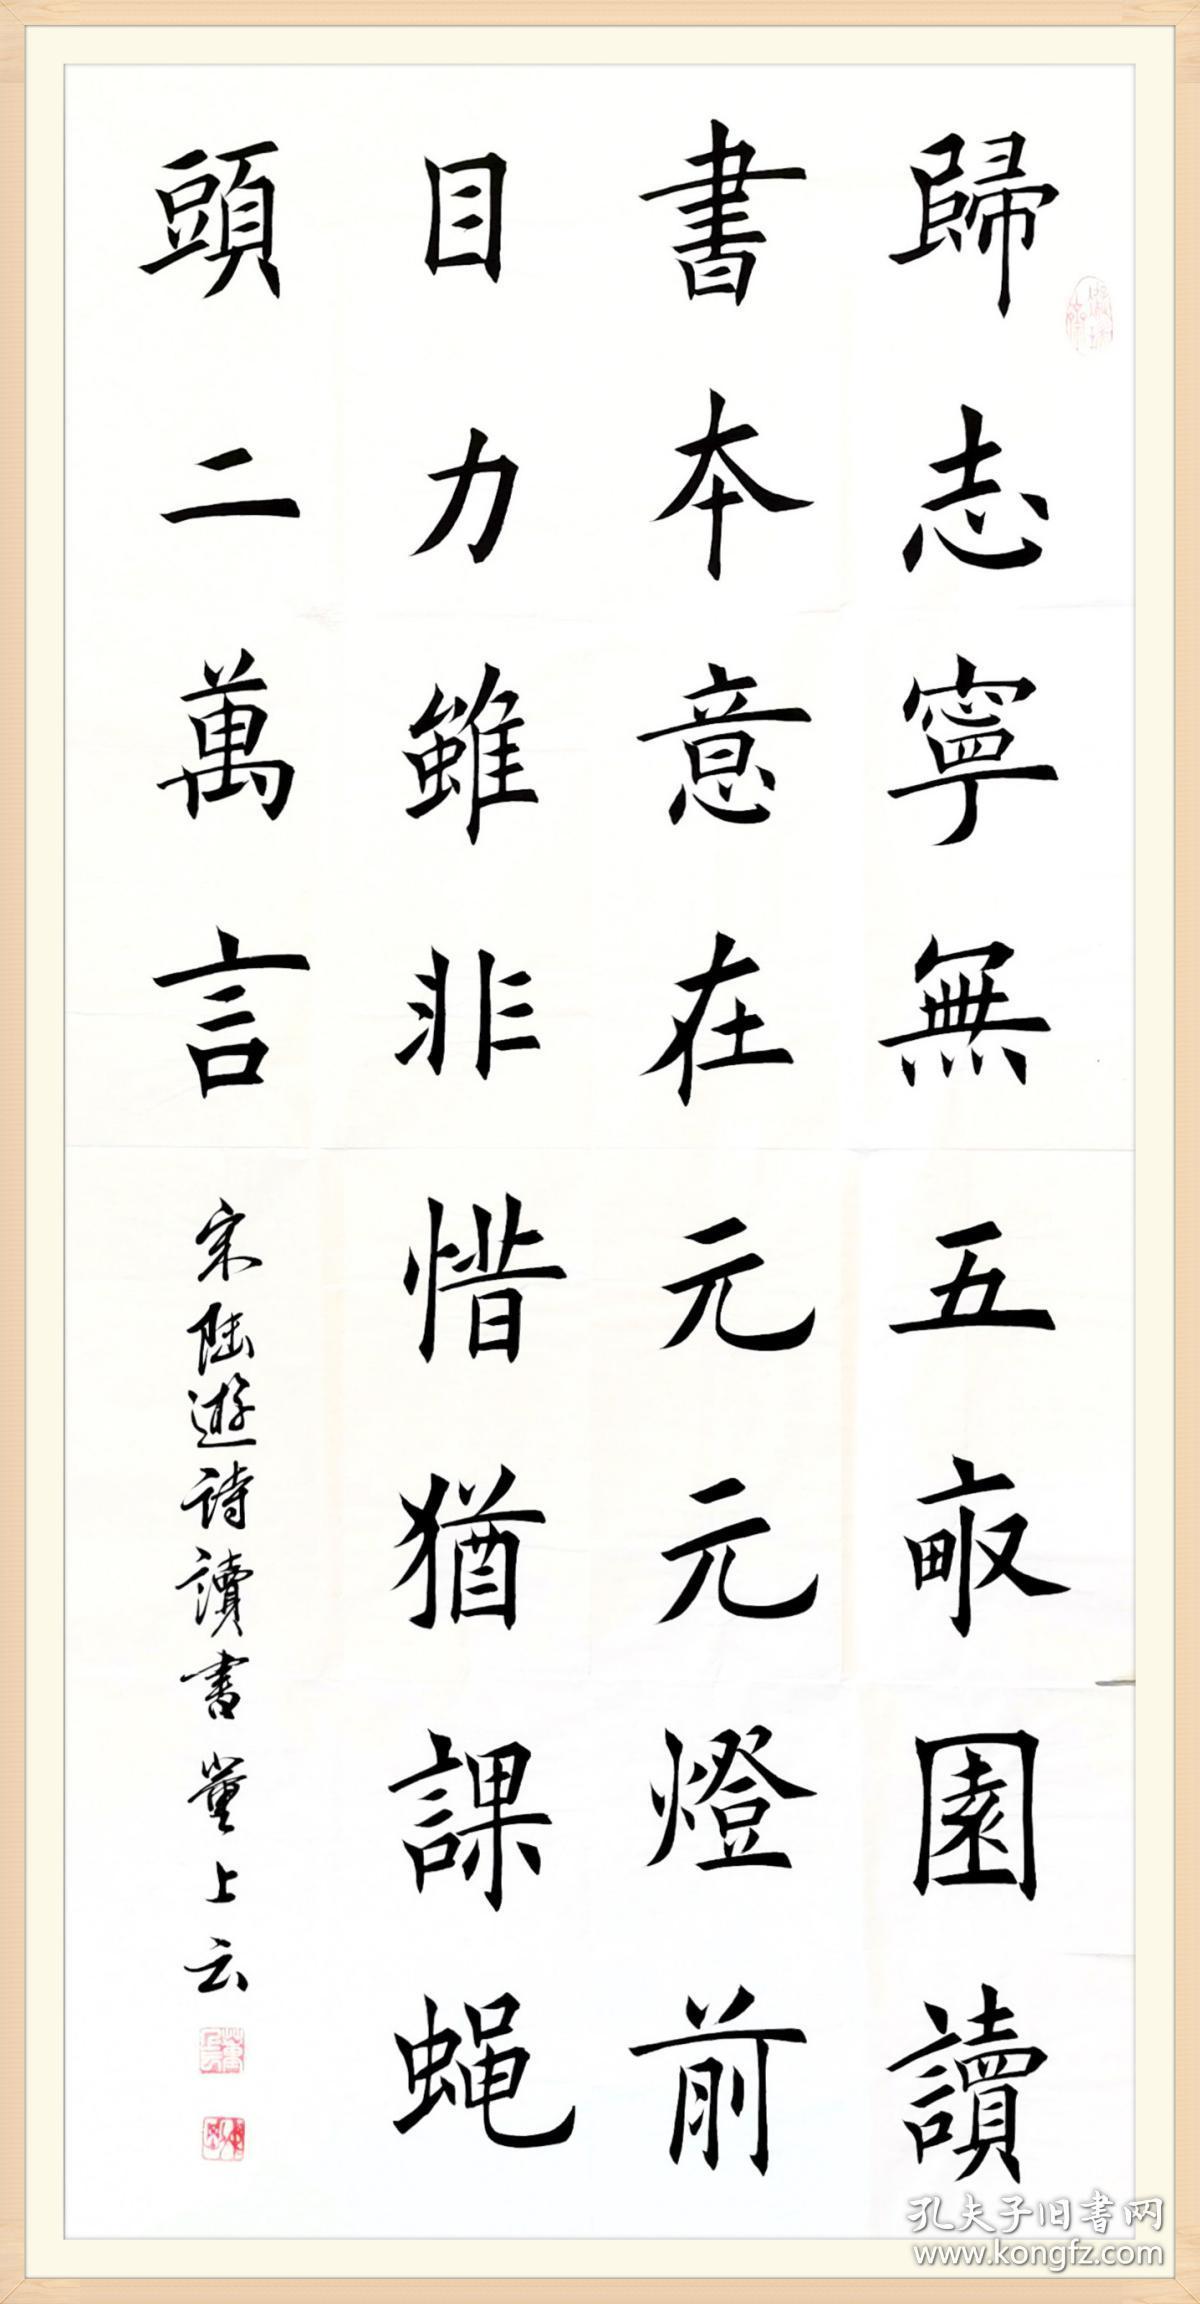 歸志寧無五畝園讀
書本意在元元燈前
目力雖非惜猶課蝇
頭二萬言
宋陸遊诗讀書董上云
孔夫子旧書网
www.kongfz.com